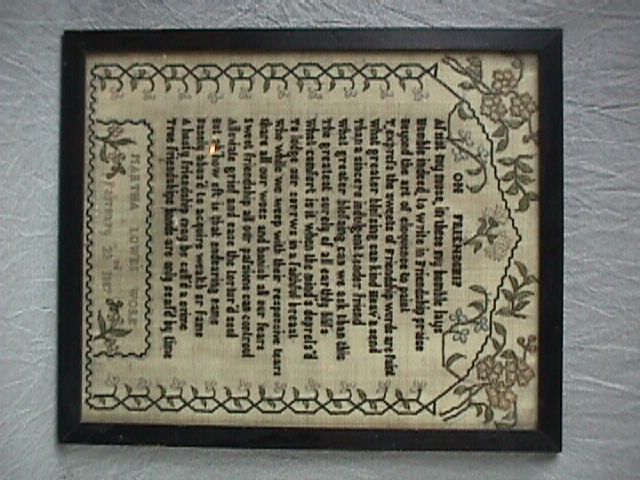 ON FRIENDSHIP
Assist my muse, in these my humble lays
Humble indeed, to write in Friendship praise
Beyond the art of eloquence to paint
T, express the sweets of Friendship words are faint
What greater blessing can kind Heav'n send
Than a sincere indulgent tender friend
What greater blessing can we ask than this
The greatest surely of all earthly bliss
What comfort is it when the mind's depress'd
To lodge our sorrows in a faithful breast
Who while we weep with her responsive tears
Shares all our woes and banish all our fears
Sweet friendship all our passions can controul
Alleviate grief and ease the tortur'd soul
But oh how oft is that endearing name
Vainly abus'd to acquire wealth or fame
A hasty friendship may be call'd a crime
True friendships bands are only seal'd by time
MARTHA LOWEL WORK
February 23rd